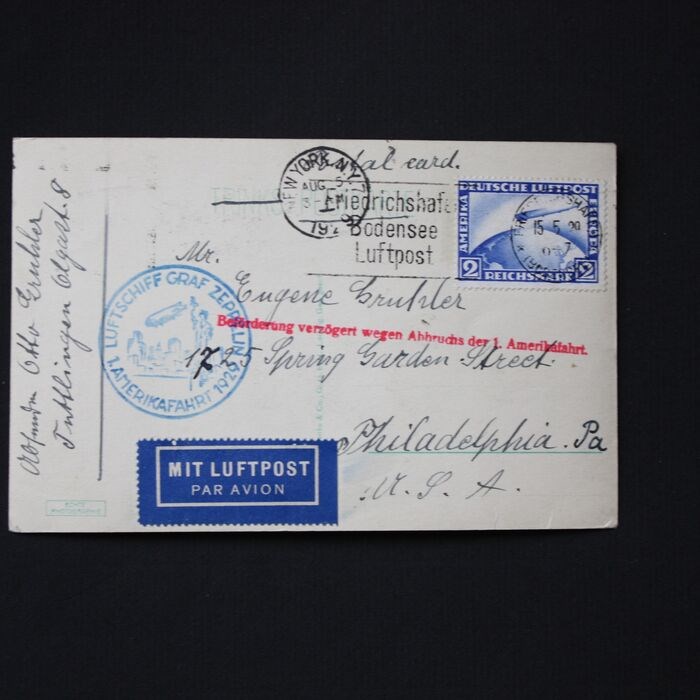 Postal card.
NEW YORK, N.Y.
AUG 5
192
Friedrichshafen
Bodensee
Luftpost
DEUTSCHE LUFTPOST
AMERIKA
EUROPA
2 REICHSMARK 2
FRIEDRICHSHAFEN
15.5.29
Mr.
Eugene Gruhler
Beförderung verzögert wegen Abbruchs der 1. Amerikafahrt.
1725 Spring Garden Street
Philadelphia. Pa
U. S. A.
LUFTSCHIFF GRAF ZEPPELIN
1. AMERIKAFAHRT 1929
MIT LUFTPOST
PAR AVION
Absender Otto Gruhler
Tuttlingen Olgast. 8
ECHTE
PHOTOGRAPHIE